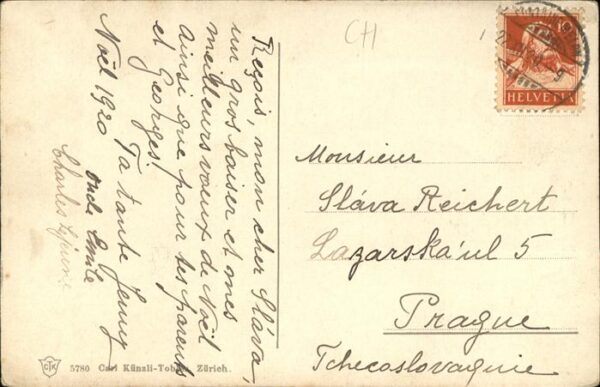 Reçois, mon cher Sláva,
un gros baiser et mes
meilleurs vœux de Noël
ainsi que pour tes parents
et Georges.
Noël 1920 Ta tante Jenny
oncle Emile
Charles
CH
10
HELVETIA
Monsieur
Sláva Reichert
Lazarská ul 5
Prague
Tchecoslovaquie
CTK
5780 Carl Künzli-Tobler, Zürich.